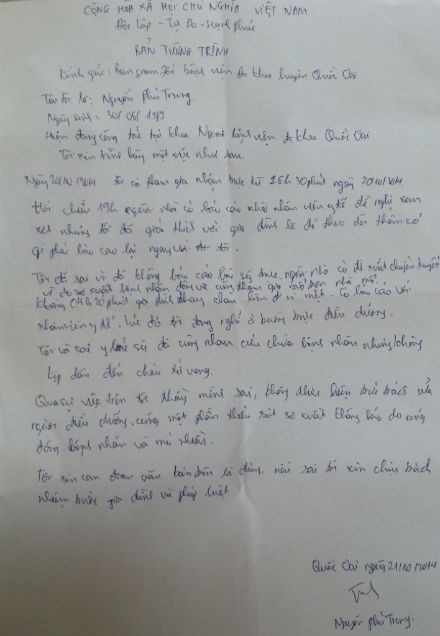 CỘNG HÒA XÃ HỘI CHỦ NGHĨA VIỆT NAM
Độc Lập - Tự Do - Hạnh Phúc
BẢN TƯỜNG TRÌNH
Kính gửi: Ban giám đốc bệnh viện đa khoa huyện Quốc Oai
Tôi tên là: Nguyễn Phú Trung
Ngày sinh: 30/08/1989
Hiện đang công tác tại khoa Ngoại bệnh viện đa khoa Quốc Oai
Tôi xin trình bày một việc như sau.
Ngày 20/10/2014 tôi có tham gia nhận trực từ 16h30phút ngày 20/10/2014
Hồi chiều 19h người nhà có báo cáo nhờ nhân viên y tế đề nghị xem
xét nhưng tôi đã giải thích với gia đình là để theo dõi thêm có
gì phải báo cáo lại ngay với tôi.
Tôi đã sai vì đã không báo cáo bác sỹ trực, người nhà có đề xuất chuyển tuyến
khoảng 04h20phút gia đình thấy chân bệnh
nhân viên y tế. lúc đó tôi đang nghỉ ở buồng trực điều dưỡng.
Tôi và bác sỹ đã cùng nhau cứu chữa bệnh nhân nhưng không
kịp dẫn đến cháu tử vong.
Qua sự việc trên tôi thấy mình sai, không thực hiện trách của
người điều dưỡng, cũng một phần thiếu sót sơ xuất không báo do
đông bệnh nhân và mổ nhiều.
Tôi xin cam đoan văn bản trên là đúng, nếu sai tôi xin chịu trách
nhiệm trước gia đình và pháp luật
Quốc Oai ngày 21/10/2014
Nguyễn Phú Trung.